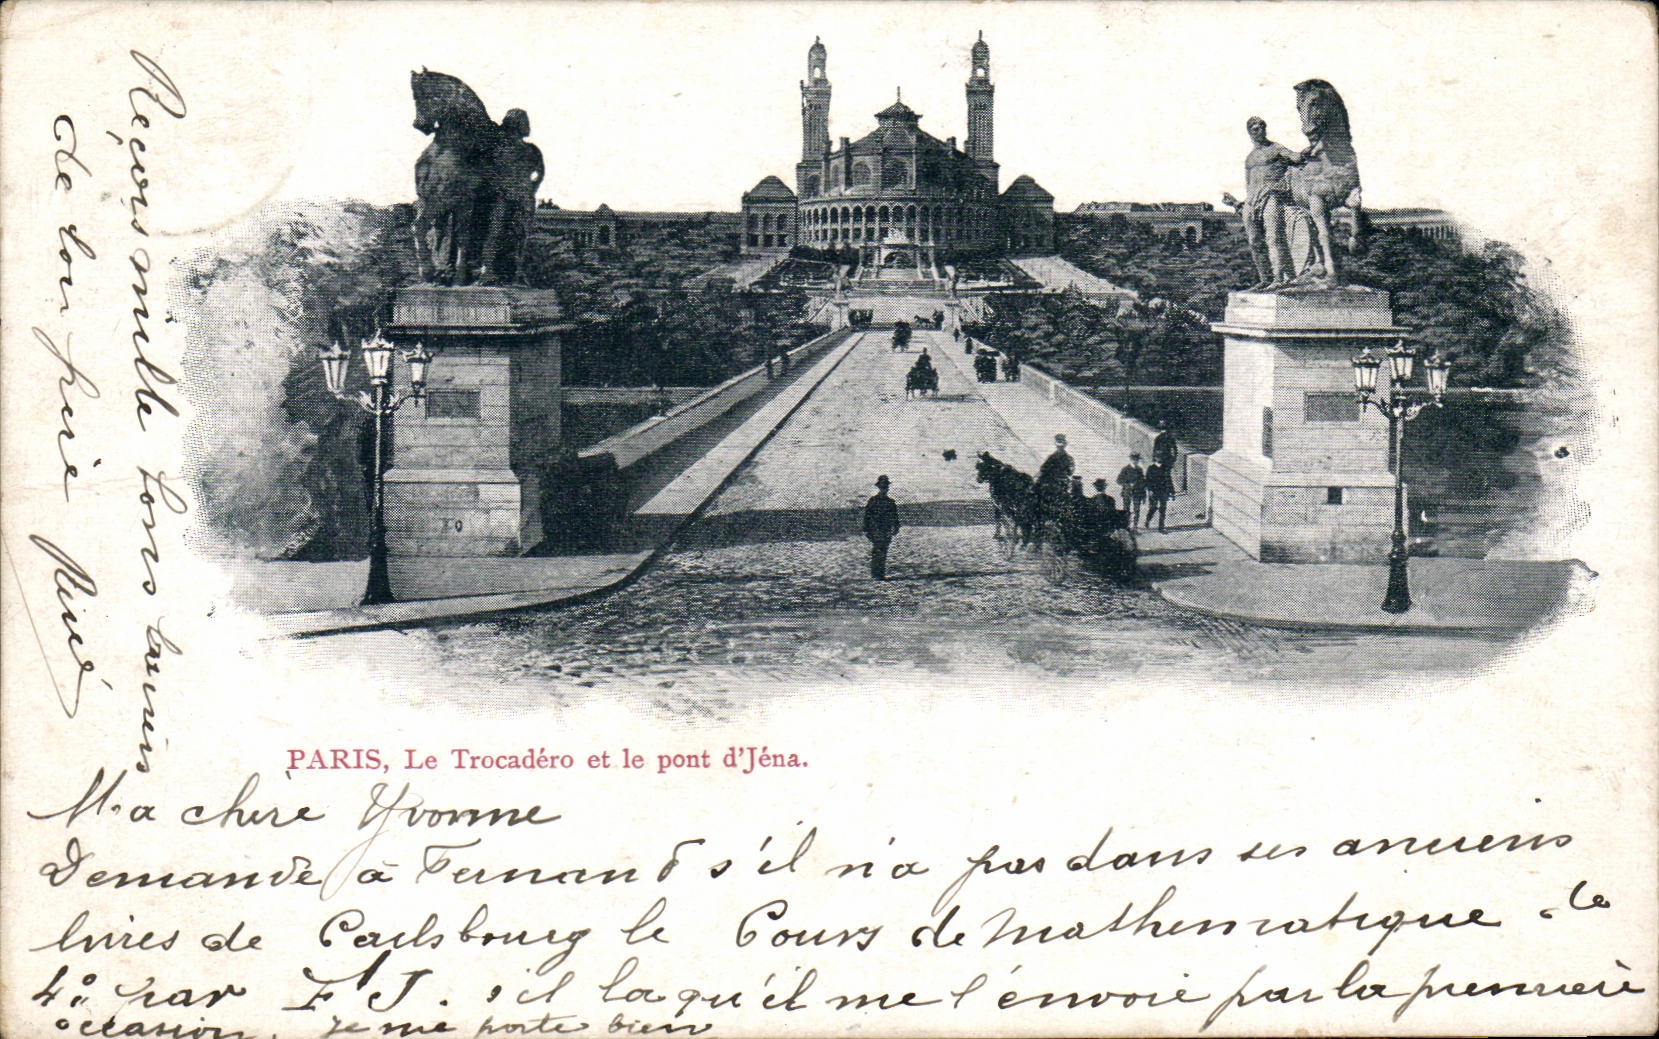 PARIS, Le Trocadéro et le pont d'Jéna.
Ma chère Yvonne
Demande à Fernand s'il n'a pas dans ses anciens
livres de Carlsbourg le Cours de Mathématique de
4º par F J. s'il la qu'il me l'envoie par la première
occasion, je me porte bien
Reçois mille bons baisers
de ton frère